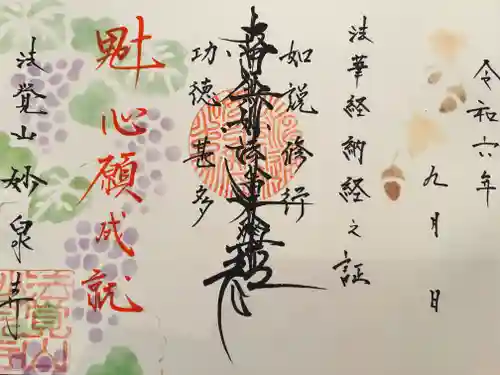 令和六年
九月 日
法華経納経之証
如説修行
南無妙法蓮華経
功徳甚多
魁 心願成就
法覚山 妙泉寺